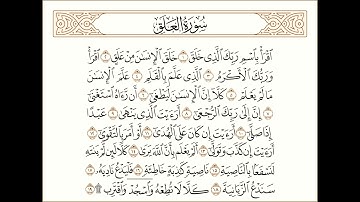 سُورَةُ العَلَقِ
ٱقۡرَأۡ بِٱسۡمِ رَبِّكَ ٱلَّذِي خَلَقَ ١ خَلَقَ ٱلۡإِنسَٰنَ مِنۡ عَلَقٍ ٢ ٱقۡرَأۡ
وَرَبُّكَ ٱلۡأَكۡرَمُ ٣ ٱلَّذِي عَلَّمَ بِٱلۡقَلَمِ ٤ عَلَّمَ ٱلۡإِنسَٰنَ
مَا لَمۡ يَعۡلَمۡ ٥ كَلَّآ إِنَّ ٱلۡإِنسَٰنَ لَيَطۡغَىٰٓ ٦ أَن رَّءَاهُ ٱسۡتَغۡنَىٰٓ
٧ إِنَّ إِلَىٰ رَبِّكَ ٱلرُّجۡعَىٰٓ ٨ أَرَءَيۡتَ ٱلَّذِي يَنۡهَىٰ ٩ عَبۡدًا
إِذَا صَلَّىٰٓ ١٠ أَرَءَيۡتَ إِن كَانَ عَلَى ٱلۡهُدَىٰٓ ١١ أَوۡ أَمَرَ بِٱلتَّقۡوَىٰٓ
١٢ أَرَءَيۡتَ إِن كَذَّبَ وَتَوَلَّىٰٓ ١٣ أَلَمۡ يَعۡلَم بِأَنَّ ٱللَّهَ يَرَىٰ ١٤ كَلَّا لَئِن لَّمۡ يَنتَهِ
لَنَسۡفَعَۢا بِٱلنَّاصِيَةِ ١٥ نَاصِيَةٖ كَٰذِبَةٍ خَاطِئَةٖ ١٦ فَلۡيَدۡعُ نَادِيَهُۥ ١٧
سَنَدۡعُ ٱلزَّبَانِيَةَ ١٨ كَلَّا لَا تُطِعۡهُ وَٱسۡجُدۡۤ وَٱقۡتَرِب۩ ١٩